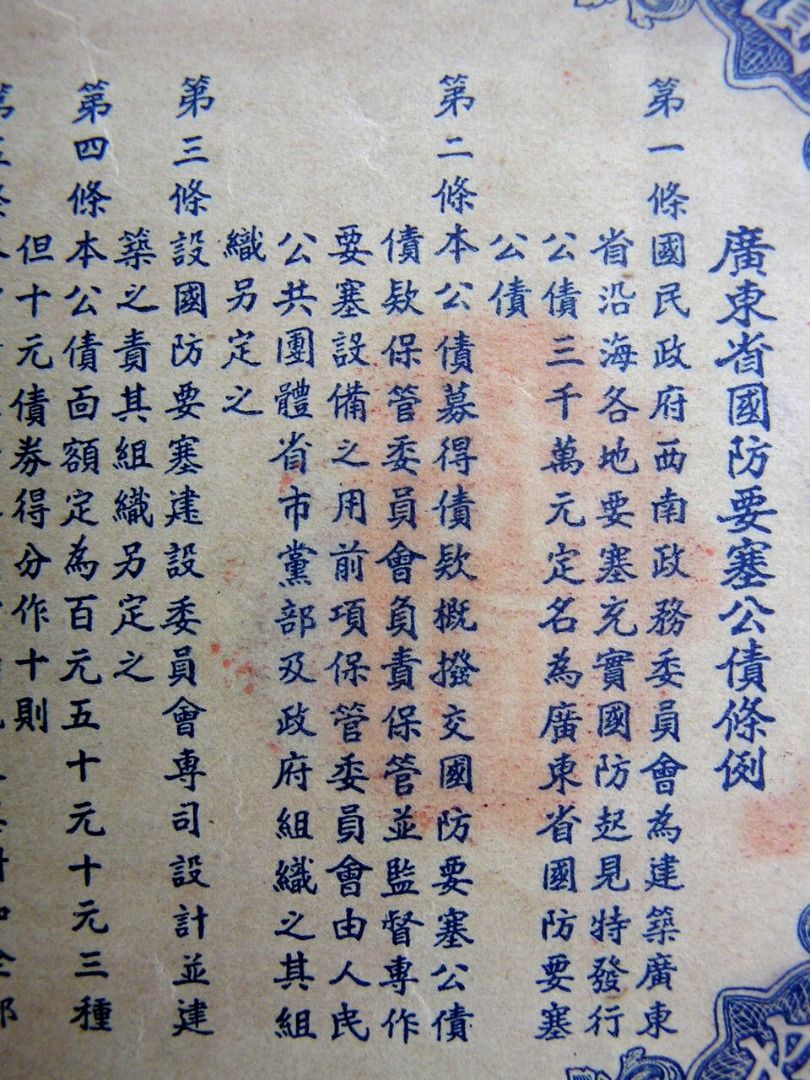 廣東省國防要塞公債條例
第一條國民政府西南政務委員會為建築廣東
省沿海各地要塞充實國防起見特發行
公債三千萬元定名為廣東省國防要塞
公債
第二條本公債募得債欵概撥交國防要塞公債
債欵保管委員會負責保管並監督專作
要塞設備之用前項保管委員會由人民
公共團體省市黨部及政府組織之其組
織另定之
第三條設國防要塞建設委員會專司設計並建
築之責其組織另定之
第四條本公債面額定為百元五十元十元三種
但十元債券得分作十則